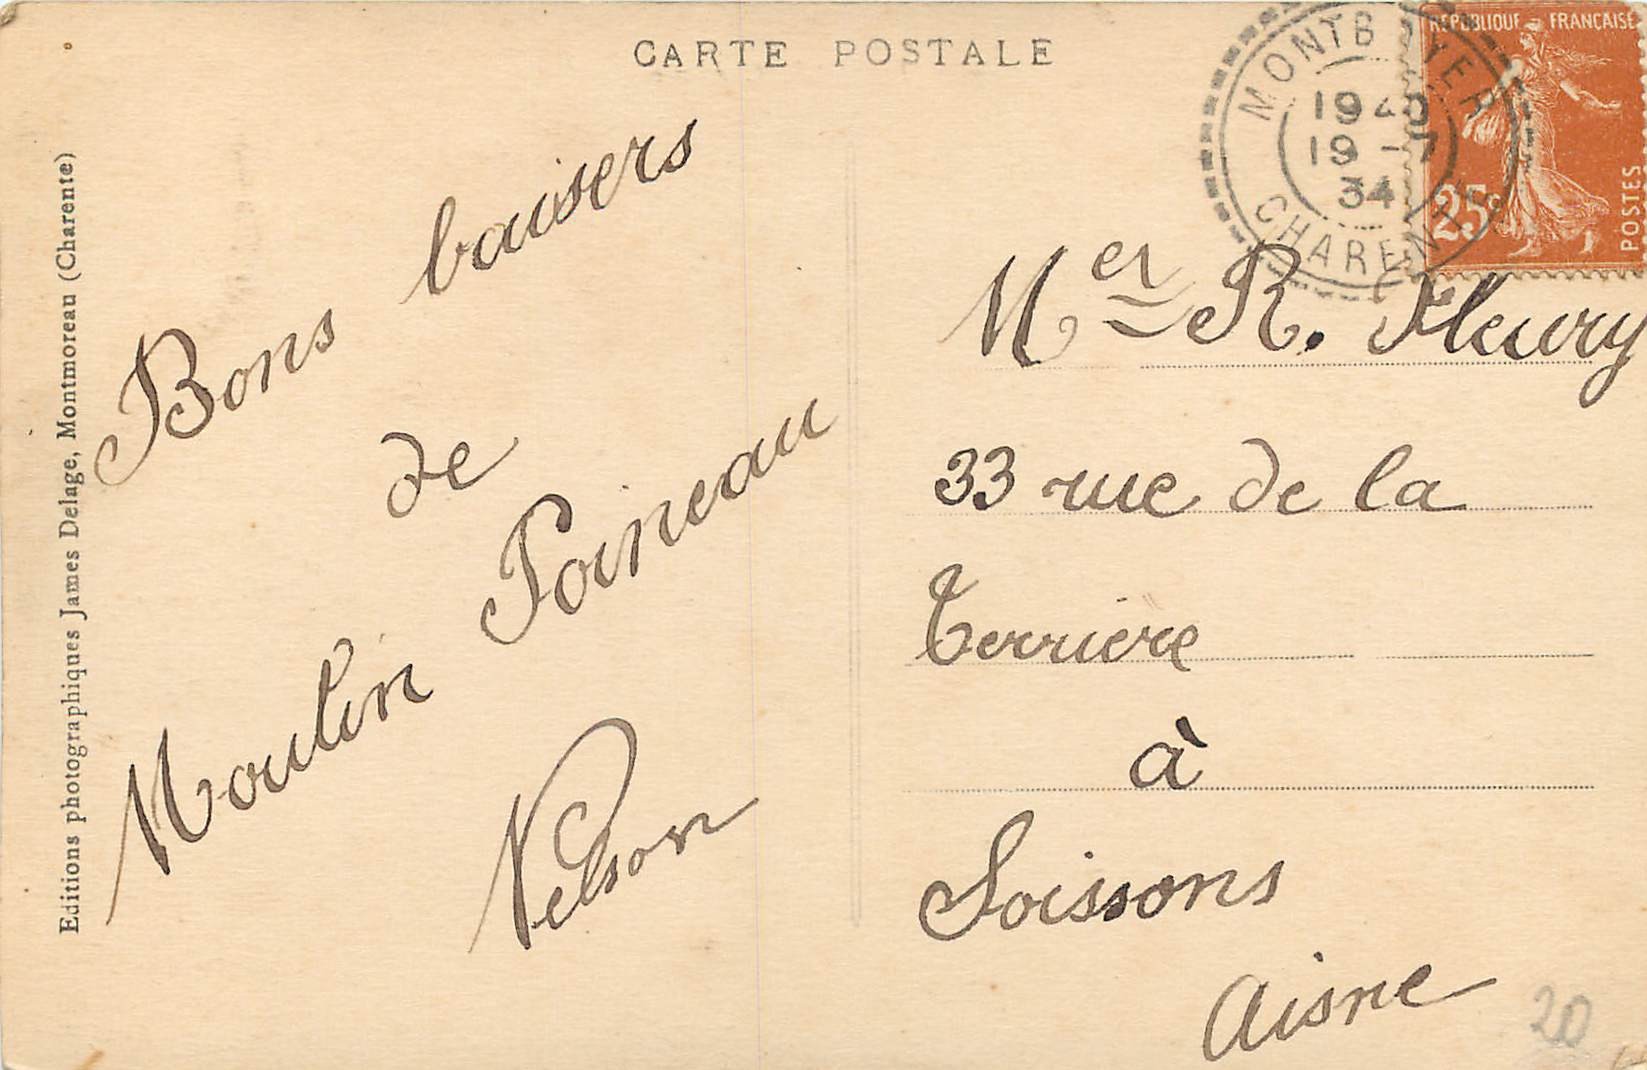 CARTE POSTALE
Editions photographiques James Delage, Montmoreau (Charente)
Bons baisers
de
Moulin Poineau
Nelson
REPUBLIQUE FRANÇAISE
25c
POSTES
MONTB YER
1940
19 -7
34
CHARENTE
Mer R. Fleury
33 rue de la
Terriere
à
Soissons
Aisne
20